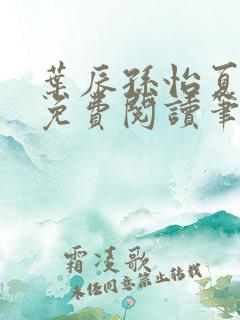 葉辰孫怡夏
免費閱讀筆
霜凌歌
未经同意禁止转载